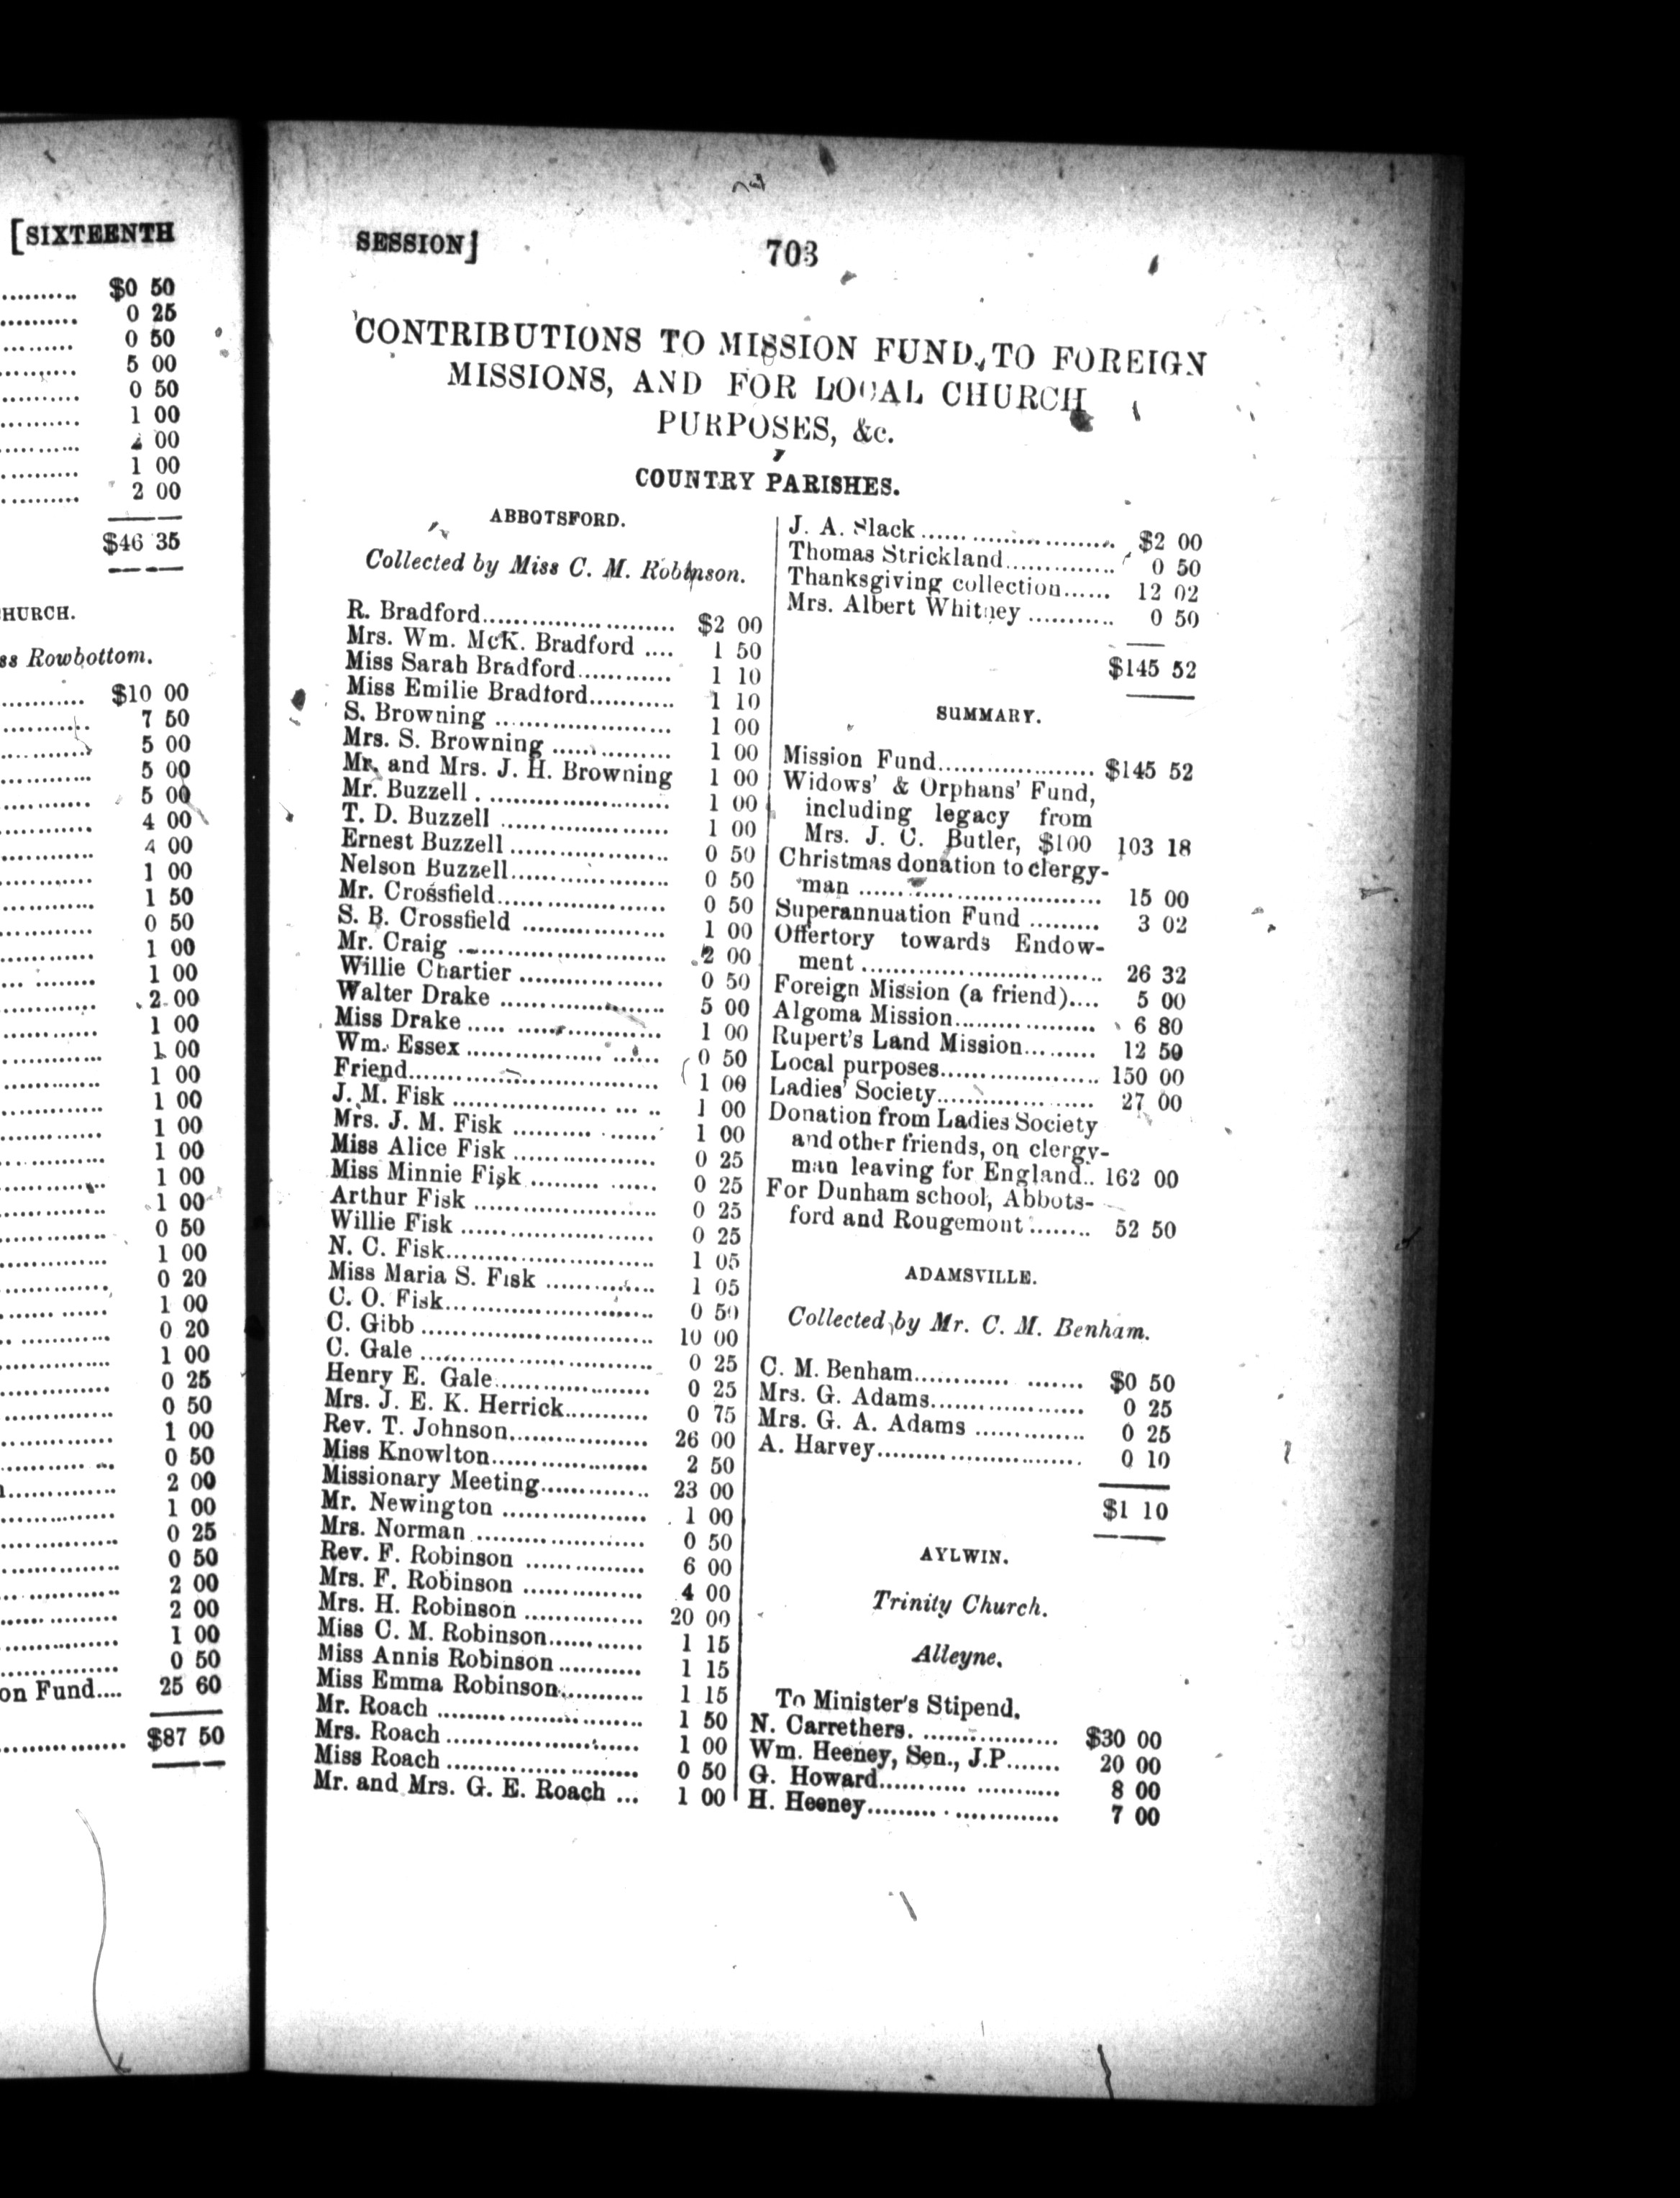 [SIXTEENTH
$0 50
0 25
0 50
5 00
0 50
1 00
00
1 00
2 00
$46 35
HURCH.
ss Rowbottom.
$10 00
7 50
5 00
5 00
5 00
4 00
4 00
1 00
1 50
0 50
1 00
1 00
2 00
1 00
1 00
1 00
1 00
1 00
1 00
1 00
1 00
0 50
1 00
0 20
1 00
0 20
1 00
0 25
0 50
1 00
0 50
2 00
1 00
0 25
0 50
2 00
2 00
1 00
0 50
on Fund.... 25 60
$87 50
SESSION] 703
CONTRIBUTIONS TO MISSION FUND, TO FOREIGN
MISSIONS, AND FOR LOCAL CHURCH
PURPOSES, &c.
COUNTRY PARISHES.
ABBOTSFORD.
Collected by Miss C. M. Robinson.
R. Bradford........................ $2 00
Mrs. Wm. McK. Bradford .... 1 50
Miss Sarah Bradford............ 1 10
Miss Emilie Bradford........... 1 10
S. Browning ........................ 1 00
Mrs. S. Browning ................ 1 00
Mr. and Mrs. J. H. Browning 1 00
Mr. Buzzell ......................... 1 00
T. D. Buzzell ....................... 1 00
Ernest Buzzell ..................... 0 50
Nelson Buzzell..................... 0 50
Mr. Crossfield...................... 0 50
S. B. Crossfield .................. 1 00
Mr. Craig ........................... 2 00
Willie Chartier .................. 0 50
Walter Drake ..................... 5 00
Miss Drake ........................ 1 00
Wm. Essex ........................ 0 50
Friend................................ 1 00
J. M. Fisk .......................... 1 00
Mrs. J. M. Fisk .................. 1 00
Miss Alice Fisk .................. 0 25
Miss Minnie Fisk ............... 0 25
Arthur Fisk ....................... 0 25
Willie Fisk ........................ 0 25
N. C. Fisk.......................... 1 05
Miss Maria S. Fisk ............. 1 05
C. O. Fisk.......................... 0 50
C. Gibb ............................. 10 00
C. Gale ............................. 0 25
Henry E. Gale.................... 0 25
Mrs. J. E. K. Herrick........... 0 75
Rev. T. Johnson.................. 26 00
Miss Knowlton.................... 2 50
Missionary Meeting............. 23 00
Mr. Newington ................... 1 00
Mrs. Norman ..................... 0 50
Rev. F. Robinson ............... 6 00
Mrs. F. Robinson ............... 4 00
Mrs. H. Robinson ............... 20 00
Miss C. M. Robinson............ 1 15
Miss Annis Robinson ........... 1 15
Miss Emma Robinson........... 1 15
Mr. Roach ......................... 1 50
Mrs. Roach ........................ 1 00
Miss Roach ........................ 0 50
Mr. and Mrs. G. E. Roach ... 1 00
J. A. Slack ........................ $2 00
Thomas Strickland.............. 0 50
Thanksgiving collection...... 12 02
Mrs. Albert Whitney ........... 0 50
$145 52
SUMMARY.
Mission Fund.................... $145 52
Widows' & Orphans' Fund,
including legacy from
Mrs. J. C. Butler, $100 103 18
Christmas donation to clergy-
man ............................... 15 00
Superannuation Fund ......... 3 02
Offertory towards Endow-
ment ............................... 26 32
Foreign Mission (a friend).... 5 00
Algoma Mission.................. 6 80
Rupert's Land Mission......... 12 50
Local purposes.................... 150 00
Ladies' Society.................... 27 00
Donation from Ladies Society
and other friends, on clergy-
man leaving for England.. 162 00
For Dunham school, Abbots-
ford and Rougemont ........ 52 50
ADAMSVILLE.
Collected by Mr. C. M. Benham.
C. M. Benham............ ....... $0 50
Mrs. G. Adams.................... 0 25
Mrs. G. A. Adams .............. 0 25
A. Harvey.......................... 0 10
$1 10
AYLWIN.
Trinity Church.
Alleyne.
To Minister's Stipend.
N. Carrethers. .................. $30 00
Wm. Heeney, Sen., J.P....... 20 00
G. Howard........... ........... 8 00
H. Heeney......... . ............. 7 00